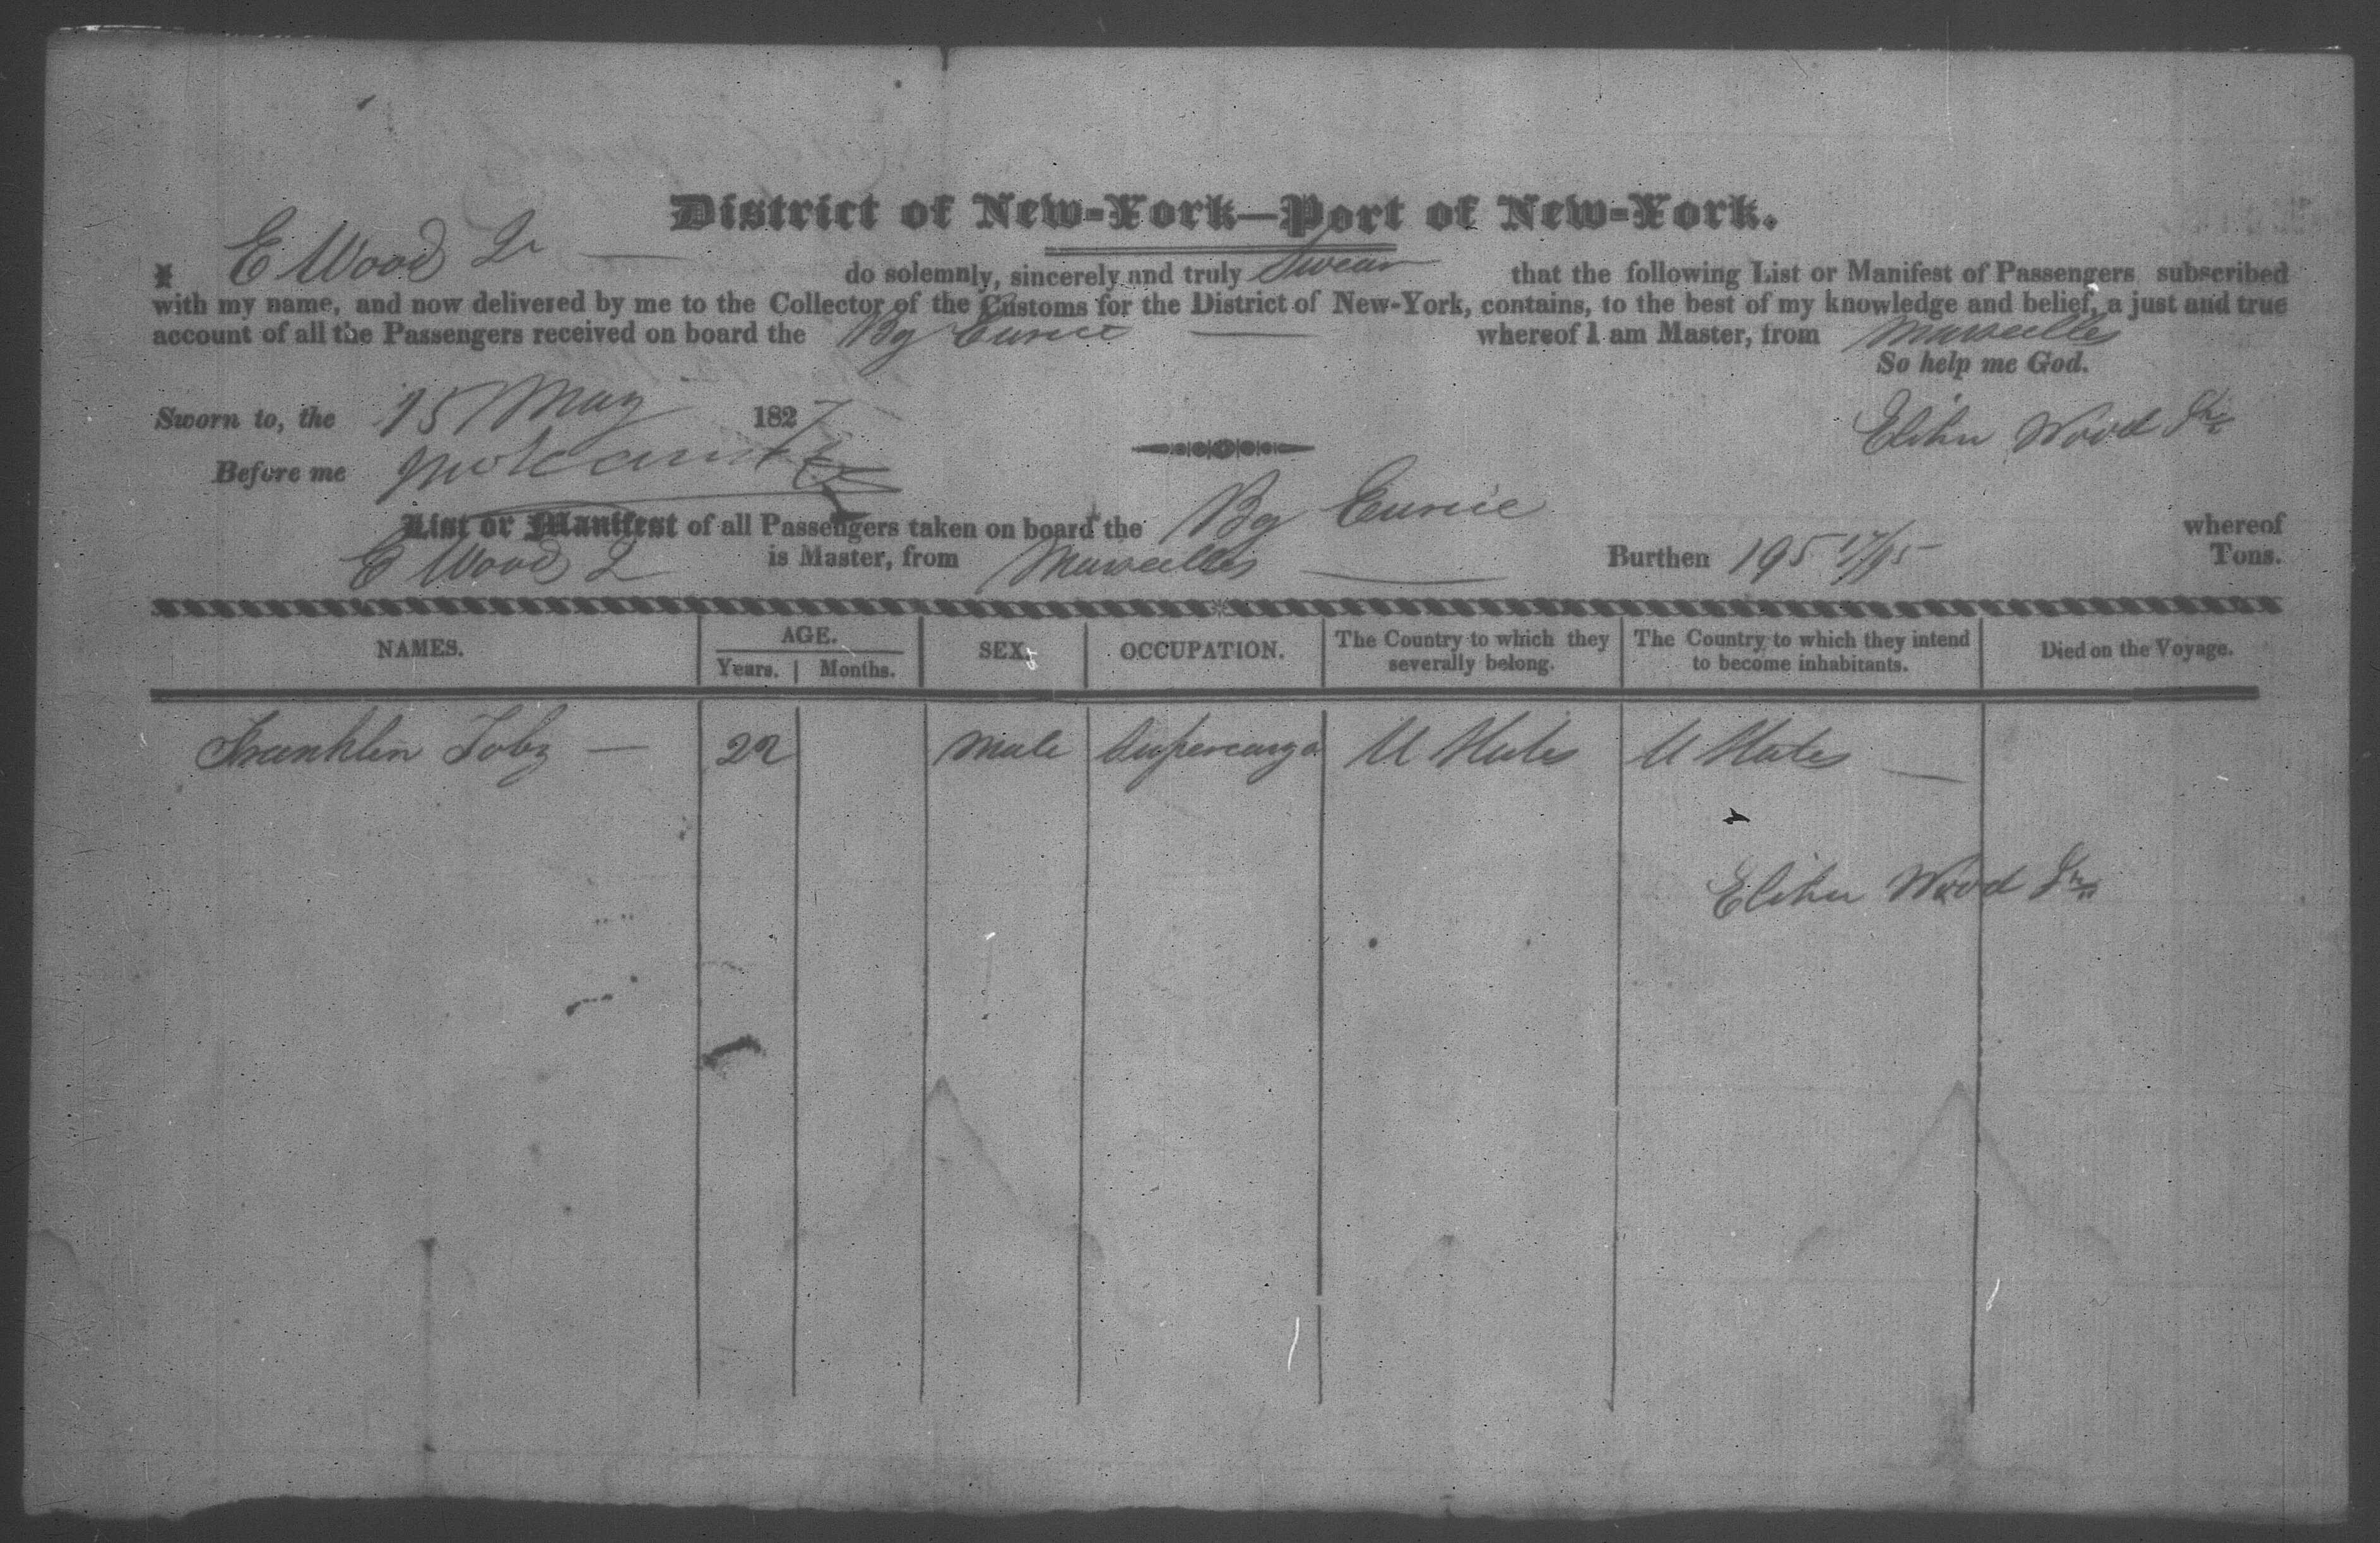 District of New-York—Port of New-York.
I E Wood Jr — do solemnly, sincerely and truly Swear that the following List or Manifest of Passengers subscribed
with my name, and now delivered by me to the Collector of the Customs for the District of New-York, contains, to the best of my knowledge and belief, a just and true
account of all the Passengers received on board the Bg Eunice — whereof I am Master, from Marseilles
So help me God.
Sworn to, the 15 May 1827 Elihu Wood Jr
Before me
List or Manifest of all Passengers taken on board the Bg Eunice whereof
E Wood Jr is Master, from Marseilles — Burthen 195 17/95 Tons.
NAMES. AGE. SEX. OCCUPATION. The Country to which they severally belong. The Country to which they intend to become inhabitants. Died on the Voyage.
Years. Months.
Franklin Toby — 22 Male Supercargo U States U States —
Elihu Wood Jr